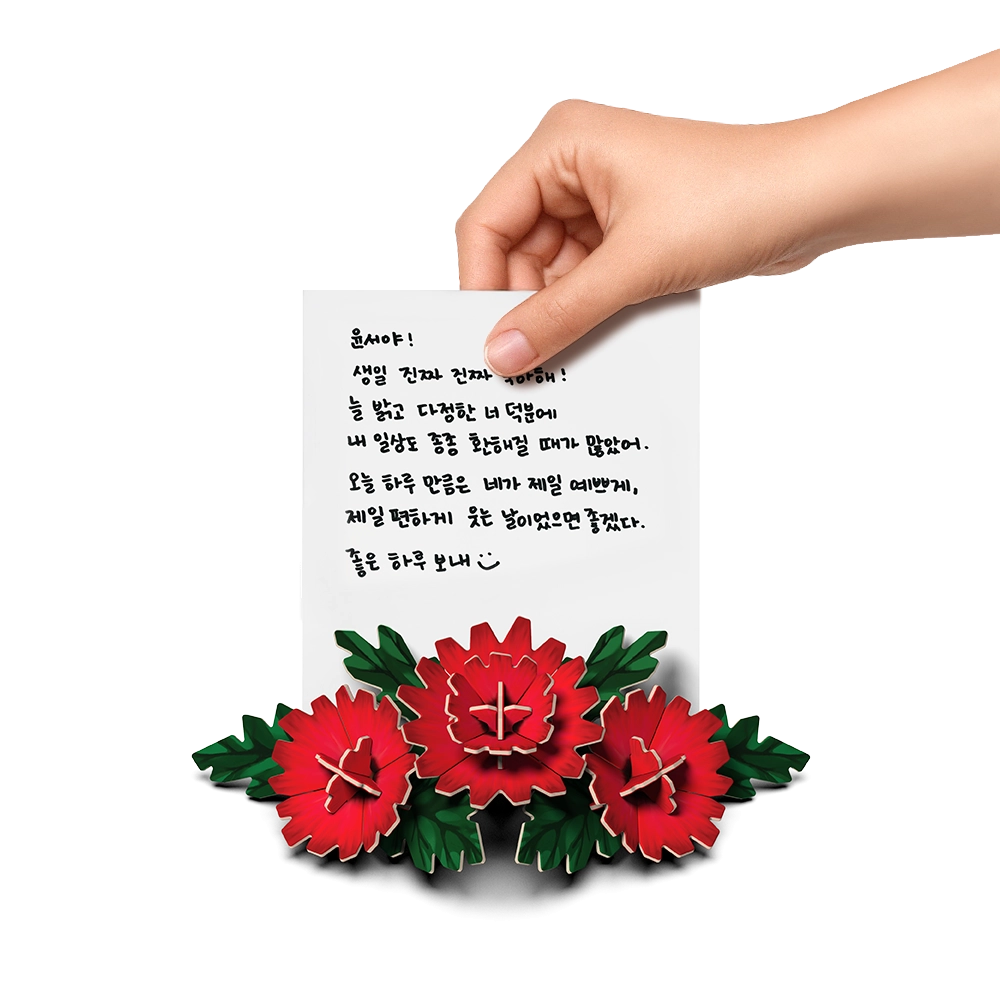 윤서야!
생일 진짜 진짜 해!
늘 밝고 다정한 너 덕분에
내 일상도 종종 환해질 때가 많았어.
오늘 하루 만큼은 네가 제일 예쁘게,
제일 편하게 웃는 날이었으면 좋겠다.
좋은 하루 보내